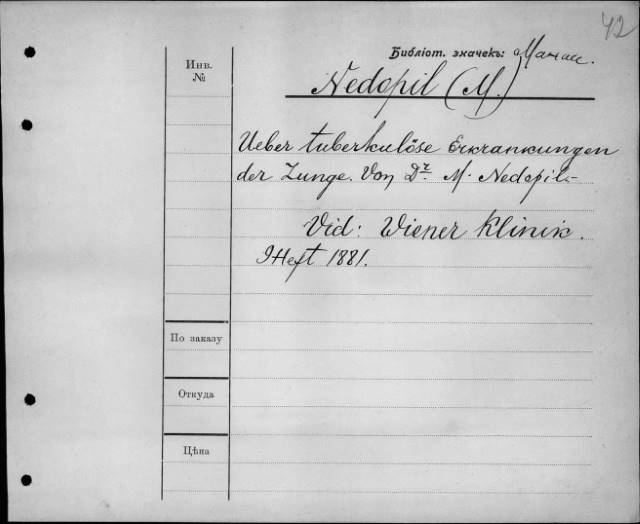 42
Библіот. значекъ:
Инв.
№
Nedopil (M.)
Ueber tuberkulöse Erkrankungen
der Zunge. Von Dr. M. Nedopil.-
Vid: Wiener Klinik.
9 Heft 1881.
По заказу
Откуда
Цѣна